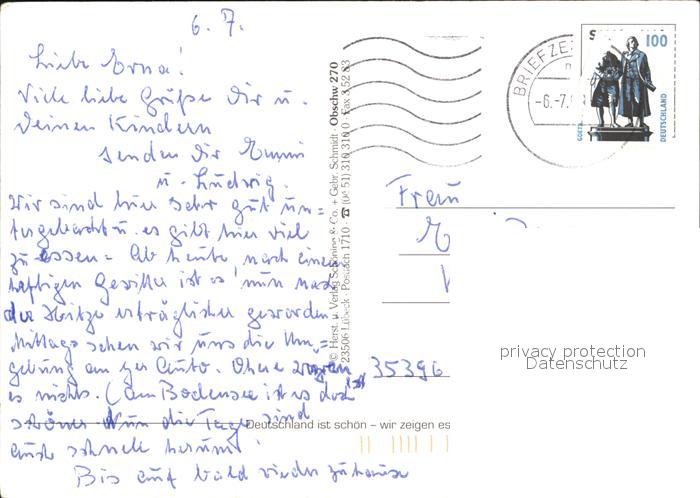 6. 7.
Liebe Erna!
Viele liebe Grüße Dir u.
Deinen Kindern
senden Dir
u. Ludwig.
Wir sind hier sehr gut un=
tergebracht u. es gibt hier viel
zu essen. Ab heute nach einem
heftigen Gewitter ist es nun nach
der Hitze erträglicher geworden.
Mittags sehen wir uns die Um=
gebung an per Auto. Ohne
es nichts. (Am Bodensee ist es doch
schöner Nun die Tage sind
auch schnell herum!
Bis auf bald wieder zuhause
© Herst. u. Verlag Schöning & Co. + Gebr. Schmidt · Obschw 270
23506 Lübeck · Postfach 1710 · ☎ (04 51) 310 310 · Fax 3 52 83
BRIEFZE
-6.-7.
100
GOETH
DEUTSCHLAND
Frau
35396
privacy protection
Datenschutz
Deutschland ist schön – wir zeigen es